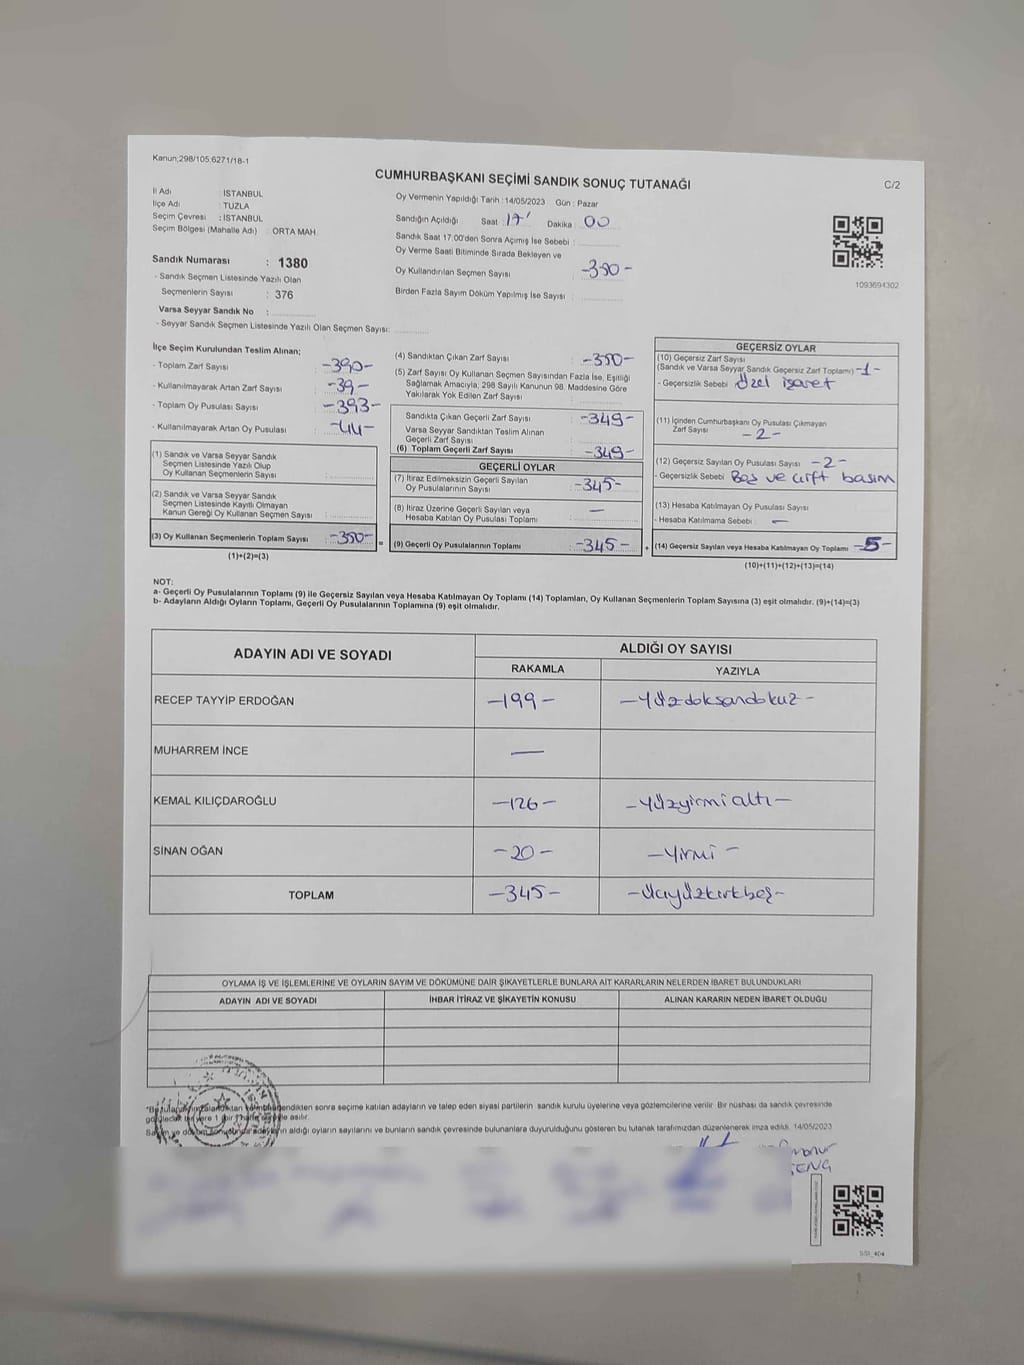 Kanun;298/105;6271/18-1
CUMHURBAŞKANI SEÇİMİ SANDIK SONUÇ TUTANAĞI
C/2
İl Adı : İSTANBUL
İlçe Adı : TUZLA
Seçim Çevresi : İSTANBUL
Seçim Bölgesi (Mahalle Adı) : ORTA MAH.
Sandık Numarası : 1380
- Sandık Seçmen Listesinde Yazılı Olan
Seçmenlerin Sayısı : 376
Varsa Seyyar Sandık No :
- Seyyar Sandık Seçmen Listesinde Yazılı Olan Seçmen Sayısı:
Oy Vermenin Yapıldığı Tarih : 14/05/2023 Gün : Pazar
Sandığın Açıldığı Saat : 17' Dakika : 00
Sandık Saat 17:00'den Sonra Açılmış İse Sebebi :
Oy Verme Saati Bitiminde Sırada Bekleyen ve
Oy Kullandırılan Seçmen Sayısı : -350-
Birden Fazla Sayım Döküm Yapılmış İse Sayısı :
1093694302
İlçe Seçim Kurulundan Teslim Alınan;
- Toplam Zarf Sayısı : -390-
- Kullanılmayarak Artan Zarf Sayısı : -39-
- Toplam Oy Pusulası Sayısı : -393-
- Kullanılmayarak Artan Oy Pusulası : -44-
(1) Sandık ve Varsa Seyyar Sandık
Seçmen Listesinde Yazılı Olup
Oy Kullanan Seçmenlerin Sayısı :
(2) Sandık ve Varsa Seyyar Sandık
Seçmen Listesinde Kayıtlı Olmayan
Kanun Gereği Oy Kullanan Seçmen Sayısı :
(3) Oy Kullanan Seçmenlerin Toplam Sayısı : -350-
(1)+(2)=(3)
(4) Sandıktan Çıkan Zarf Sayısı : -350-
(5) Zarf Sayısı Oy Kullanan Seçmen Sayısından Fazla İse, Eşitliği
Sağlamak Amacıyla, 298 Sayılı Kanunun 98. Maddesine Göre
Yakılarak Yok Edilen Zarf Sayısı :
Sandıkta Çıkan Geçerli Zarf Sayısı : -349-
Varsa Seyyar Sandıktan Teslim Alınan
Geçerli Zarf Sayısı :
(6) Toplam Geçerli Zarf Sayısı : -349-
GEÇERLİ OYLAR
(7) İtiraz Edilmeksizin Geçerli Sayılan
Oy Pusulalarının Sayısı : -345-
(8) İtiraz Üzerine Geçerli Sayılan veya
Hesaba Katılan Oy Pusulası Toplamı : —
= (9) Geçerli Oy Pusulalarının Toplamı : -345-
GEÇERSİZ OYLAR
(10) Geçersiz Zarf Sayısı
(Sandık ve Varsa Seyyar Sandık Geçersiz Zarf Toplamı) : -1-
- Geçersizlik Sebebi : özel işaret
(11) İçinden Cumhurbaşkanı Oy Pusulası Çıkmayan
Zarf Sayısı : -2-
(12) Geçersiz Sayılan Oy Pusulası Sayısı : -2-
- Geçersizlik Sebebi : Boş ve çift basım
(13) Hesaba Katılmayan Oy Pusulası Sayısı :
- Hesaba Katılmama Sebebi : —
+ (14) Geçersiz Sayılan veya Hesaba Katılmayan Oy Toplamı : -5-
(10)+(11)+(12)+(13)=(14)
NOT:
a- Geçerli Oy Pusulalarının Toplamı (9) ile Geçersiz Sayılan veya Hesaba Katılmayan Oy Toplamı (14) Toplamları, Oy Kullanan Seçmenlerin Toplam Sayısına (3) eşit olmalıdır. (9)+(14)=(3)
b- Adayların Aldığı Oyların Toplamı, Geçerli Oy Pusulalarının Toplamına (9) eşit olmalıdır.
ADAYIN ADI VE SOYADI
ALDIĞI OY SAYISI
RAKAMLA YAZIYLA
RECEP TAYYİP ERDOĞAN -199- -Yüzdoksandokuz-
MUHARREM İNCE —
KEMAL KILIÇDAROĞLU -126- -Yüzyirmialtı-
SİNAN OĞAN -20- -Yirmi-
TOPLAM -345- -Üçyüzkırkbeş-
OYLAMA İŞ VE İŞLEMLERİNE VE OYLARIN SAYIM VE DÖKÜMÜNE DAİR ŞİKAYETLERLE BUNLARA AİT KARARLARIN NELERDEN İBARET BULUNDUKLARI
ADAYIN ADI VE SOYADI İHBAR İTİRAZ VE ŞİKAYETİN KONUSU ALINAN KARARIN NEDEN İBARET OLDUĞU
sonra seçime katılan adayların ve talep eden siyasi partilerin sandık kurulu üyelerine veya gözlemcilerine verilir. Bir nüshası da sandık çevresinde
asılır.
aldığı oyların sayılarını ve bunların sandık çevresinde bulunanlara duyurulduğunu gösteren bu tutanak tarafımızdan düzenlenerek imza edildi. 14/05/2023
SS1_404